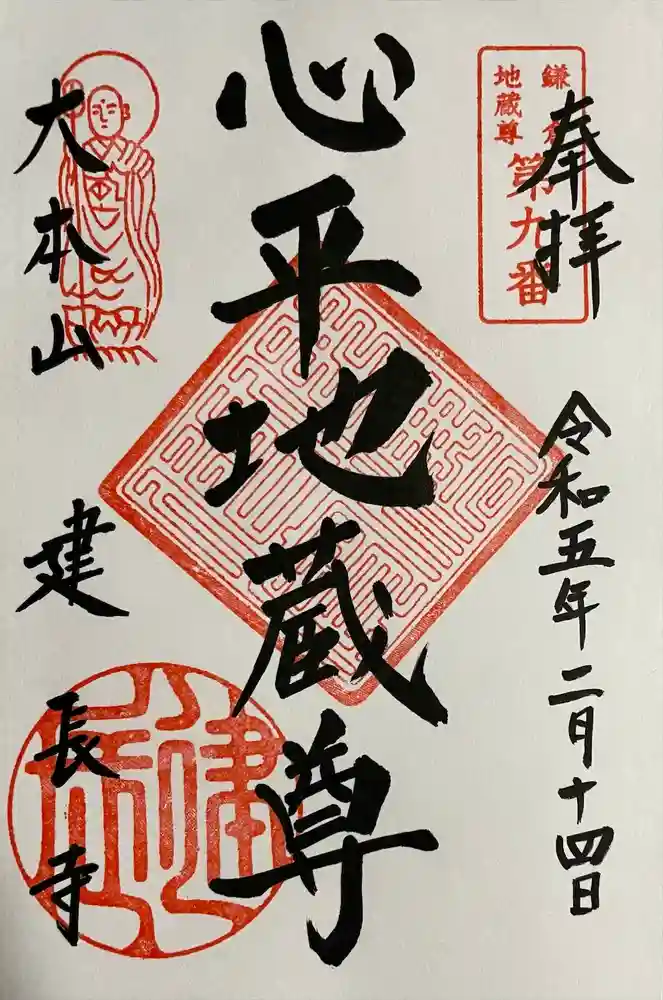 鎌倉
地蔵尊
第九番
奉拝
令和五年二月十四日
心平地蔵尊
大本山
建長寺